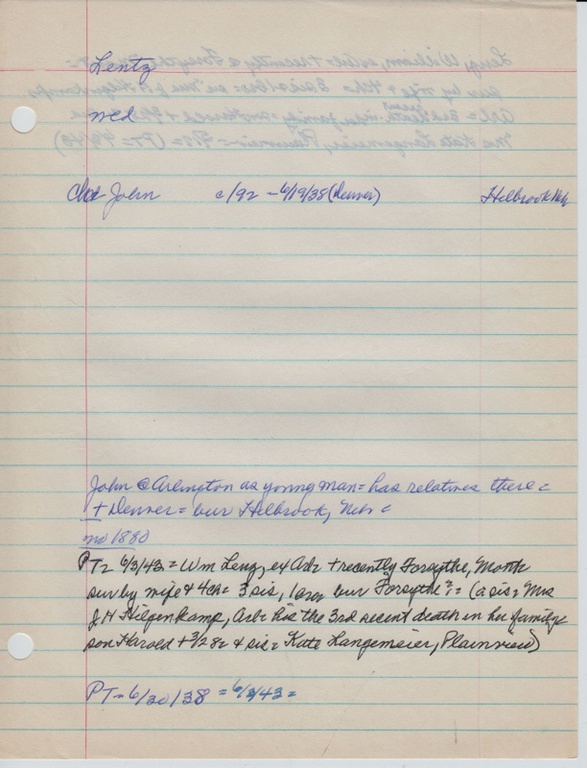 Lentz
ned
John c/92 - 6/19/38 (Denver) Holbrook Neb
John @ Arlington as young man = has relatives there =
+ Denver = bur Holbrook, Neb =
no 1880
PT = 6/3/43 = Wm Leng, ex Arl = + recently Forsythe, Mont =
sur by wife & 4ch = 3 sis, 1 bro = bur Forsythe ? = (a sis = Mrs
J H Hilgenkamp, Arl = his the 3rd recent death in her family =
son Harold + 3/28 = & sis = Kate Langemeier, Plainview)
PT = 6/30/38 = 6/3/43 =